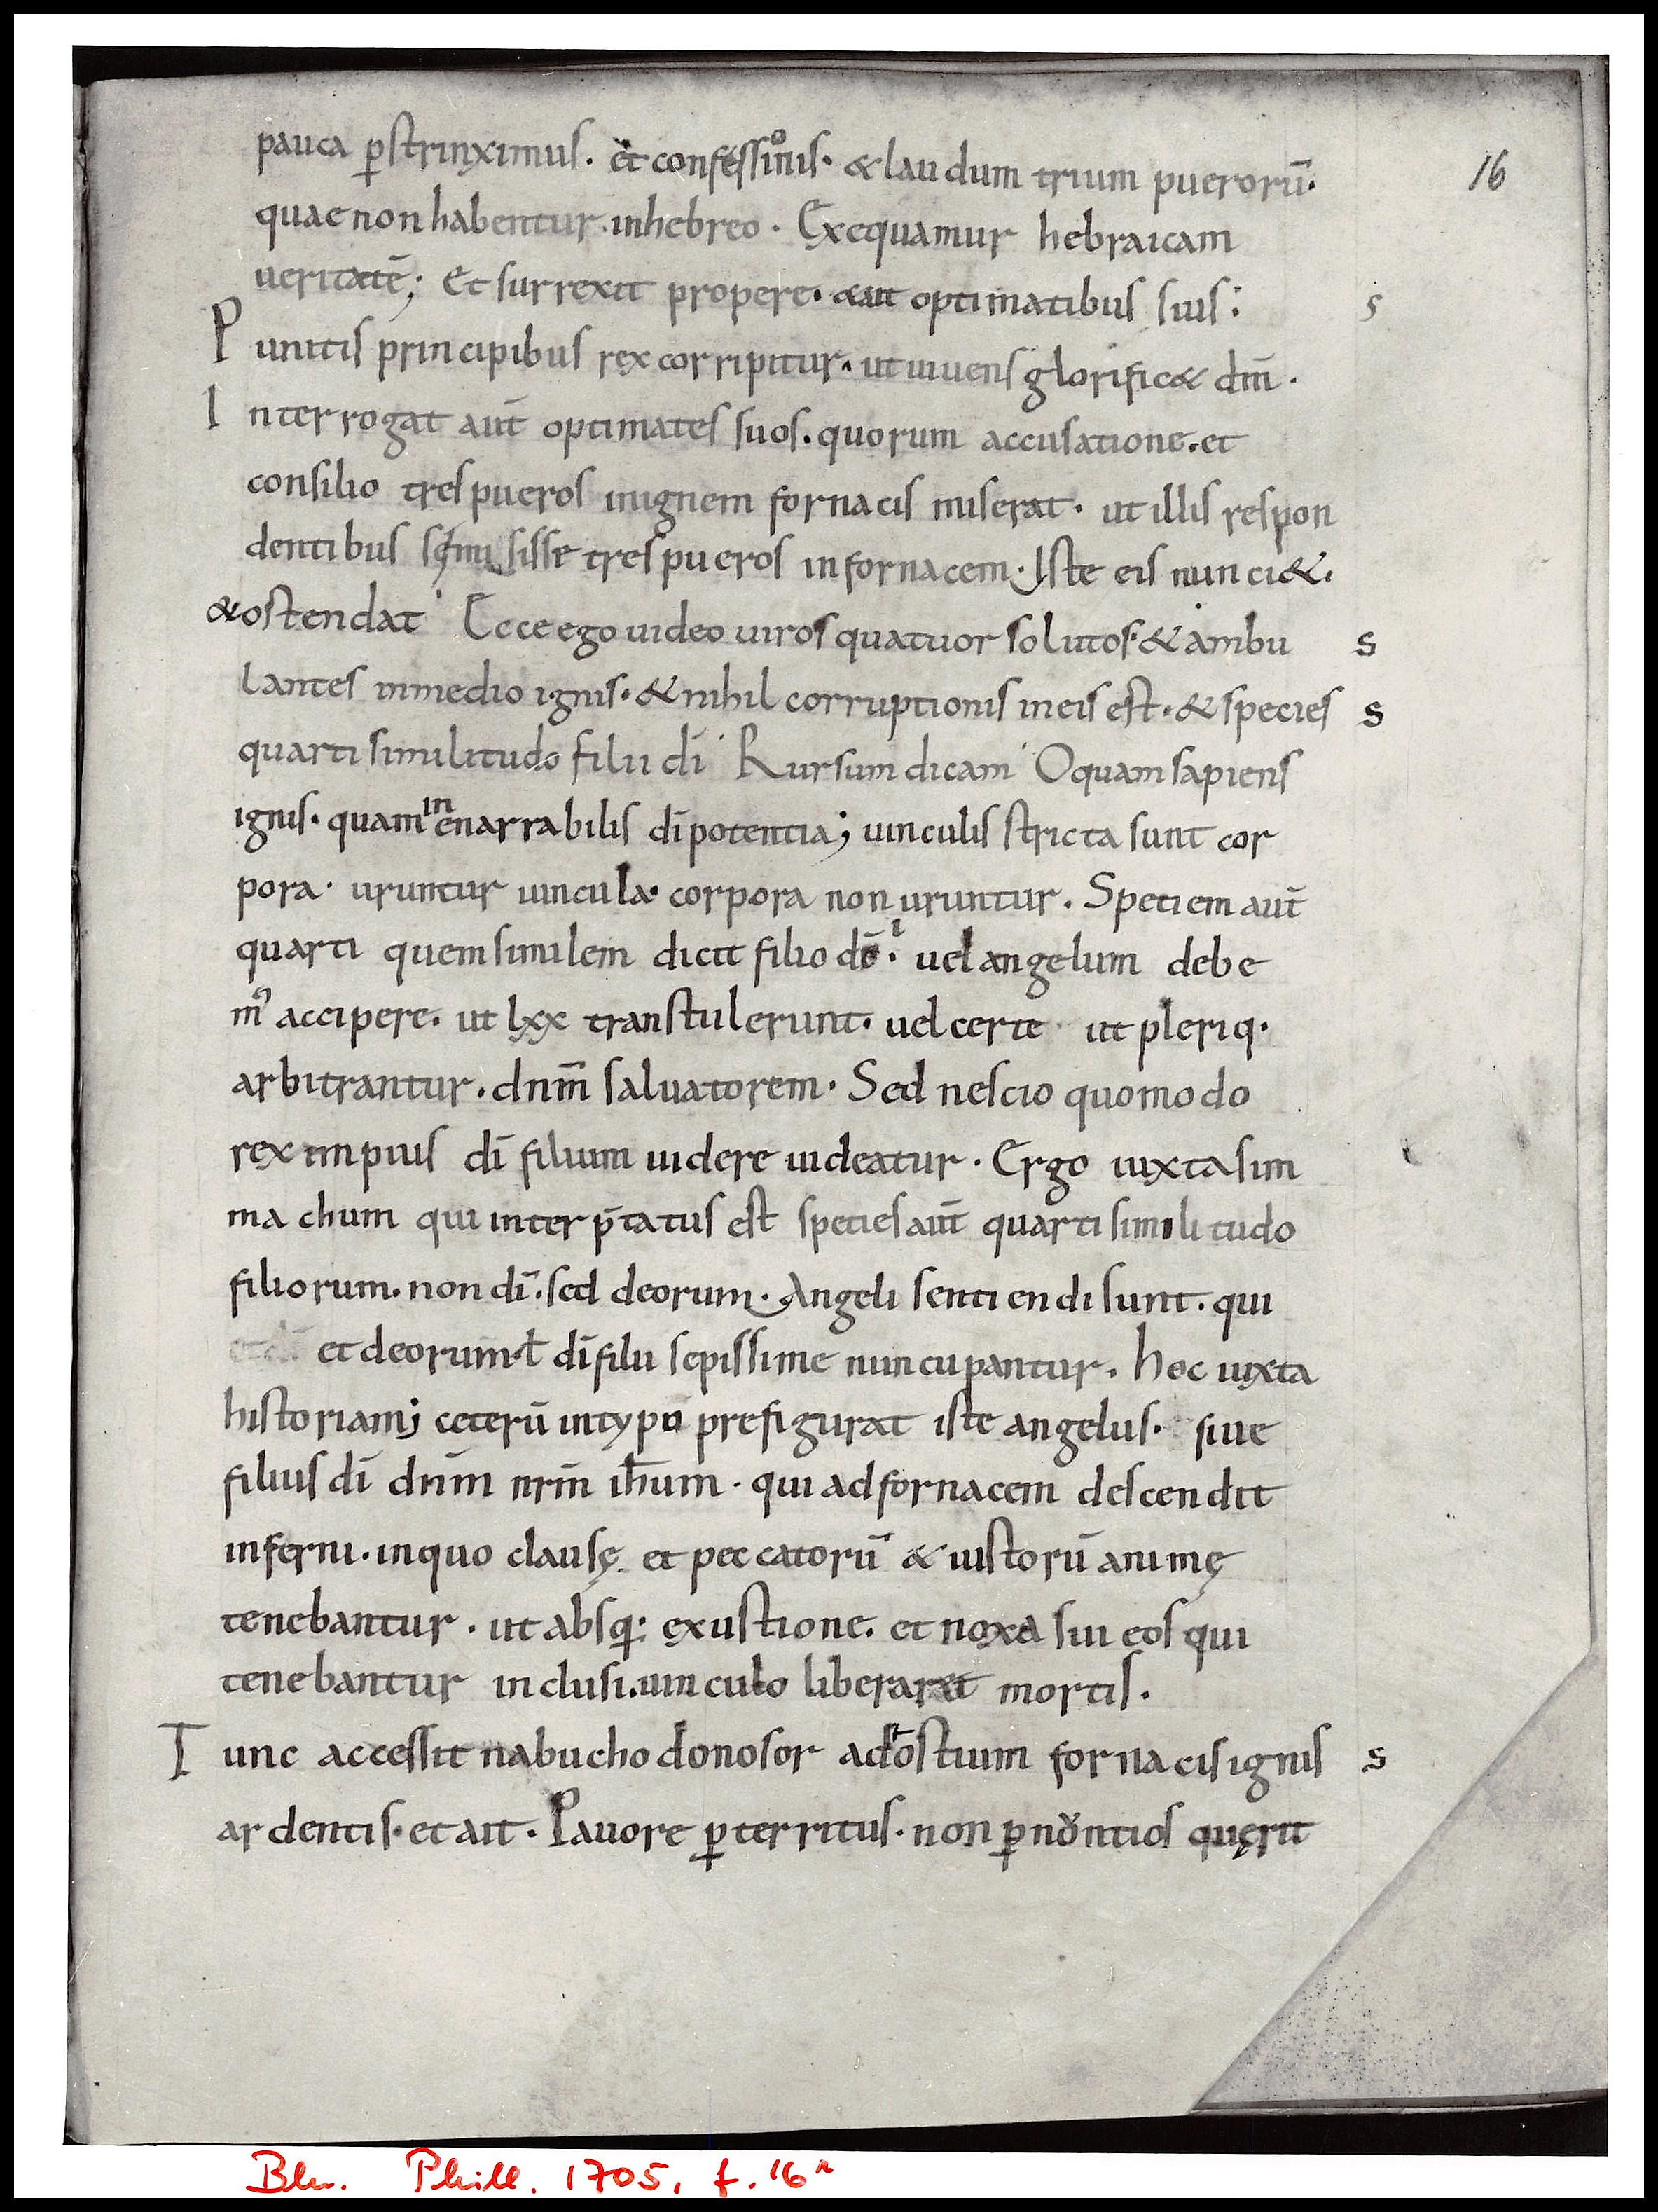 pauca ꝑstrinximus. et confessionis. & laudum trium puerorū.
16
quae non habentur. in hebreo. Exequamur hebraicam
ueritatē; Et surrexit propere. & ait optimatibus suis: s
Punitis principibus rex corripitur. ut uiuens glorific& dm̄.
Interrogat aut̄ optimates suos. quorum accusatione. et
consilio tres pueros in ignem fornacis miserat. ut illis respon
dentibus sę misisse tres pueros in fornacem. Iste eis nunci&.
& ostendat Ecce ego uideo uiros quatuor solutos. & ambu s
lantes in medio ignis. & nihil corruptionis in eis est. & species s
quarti similitudo filii dī Rursum dicam O quam sapiens
ignis. quam inenarrabilis dī potentia; uinculis stricta sunt cor
pora. uruntur uincula. corpora non uruntur. Spetiem aut̄
quarti quem similem dicit filio dī. uel angelum debe
mꝰ accipere. ut lxx transtulerunt. uel certe ut pleriq.
arbitrantur. dnm̄ saluatorem. Sed nescio quomodo
rex impius dī filium uidere uideatur. Ergo iuxta sim
machum qui interp̄tatus est speties aut̄ quarti similitudo
filiorum. non dī. sed deorum. Angeli sentiendi sunt. qui
et deorum ł dī filii sepissime nuncupantur. hoc iuxta
historiam; ceterū in typo prefigurat iste angelus. siue
filius dī dnm̄ nrm̄ ih̄um. qui ad fornacem descendit
inferni. in quo clausę et peccatorū & iustorū animę
tenebantur. ut absq: exustione. et noxa sui eos qui
tenebantur inclusi. uinculo liberaret mortis.
Tunc accessit nabuchodonosor ad ostium fornacis ignis s
ardentis. et ait. Pauore ꝑterritus. non ꝑ nuntios quęrit
Bln. Phill. 1705, f. 16r